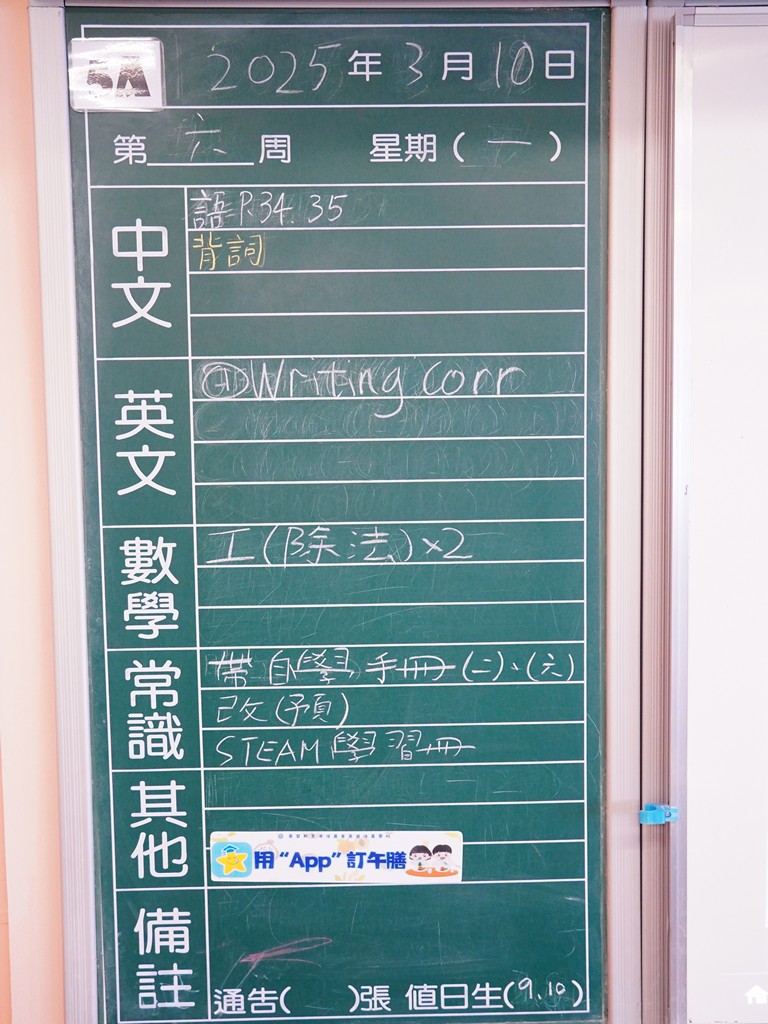 5A
2025年3月10日
第六周 星期(一)
中文
語P.34.35
背詞
英文
①Writing corr
數學
工(除法)×2
常識
帶自學手冊(二)、(六)
改(預)
STEAM學習冊
其他
用“App”訂午膳
備註
通告( )張 值日生(9.10)